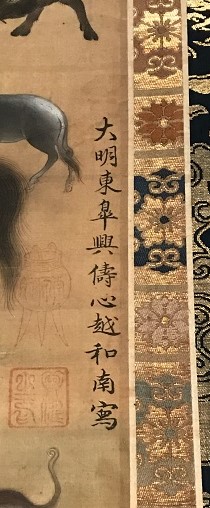 大明東皐興儔心越和南寫